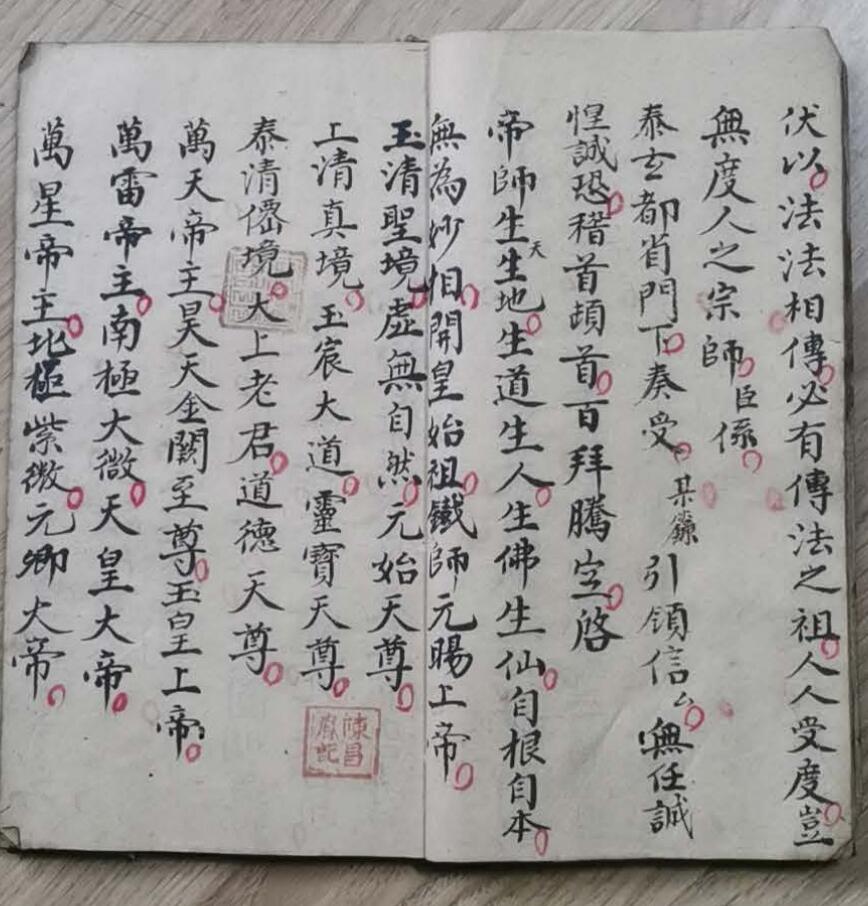 伏以法法相傳必有傳法之祖人人受度豈
無度人之宗師臣係
泰玄都省門下奏受某籙引領信厶無任誠
惶誠恐稽首頓首百拜騰空啓
帝師生天生地生道生人生佛生仙自根自本
無為妙相開皇始祖鐵師元暘上帝
玉清聖境虛無自然元始天尊
上清真境玉宸大道靈寶天尊
泰清僊境大上老君道德天尊
萬天帝主昊天金闕至尊玉皇上帝
萬雷帝主南極大微天皇大帝
萬星帝主北極紫微元卿大帝
陳昌